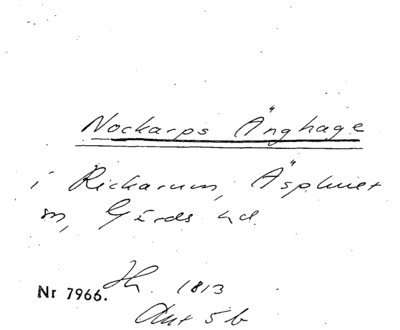 Nockarps Änghage
i Rickarum, Äsphult
sn, Gärds hd.
Nr 7966. Jh. 1813
Akt 5b